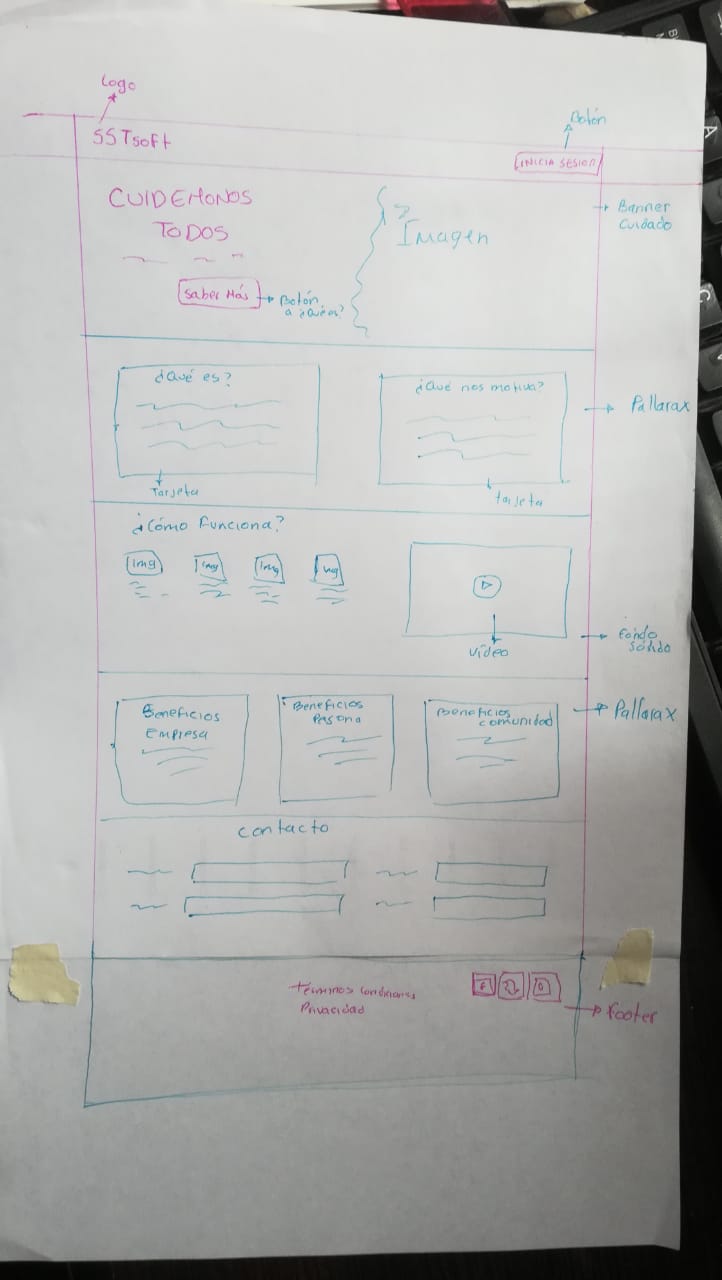 Logo
SSTsoft
Botón
INICIA SESION
CUIDEMONOS
TODOS
Imagen
Banner
Cuidado
Saber Más
Botón
a ¿Qué es?
¿Qué es?
¿Qué nos motiva?
Pallarax
Tarjeta
tarjeta
¿Cómo Funciona?
img
img
img
img
Video
Fondo
Sólido
Beneficios
Empresa
Beneficios
Pasona
Beneficios
comunidad
Pallarax
Contacto
Términos Condiciones
Privacidad
Footer